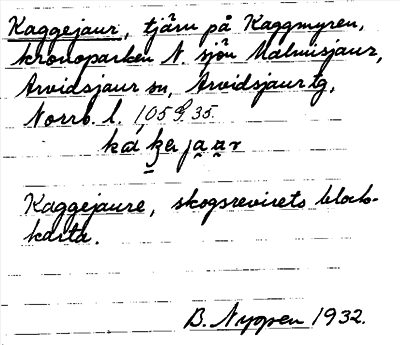 Kaggejaur, tjärn på Kaggmyren,
kronoparken N. sjön Malmisjaur,
Arvidsjaur sn, Arvidsjaur tg,
Norrb. l. 1,05 S. 35.
Kaggejaure, skogsrevirets block-
karta.
B. Nyppen 1932.